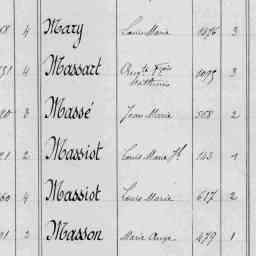 18 4 Mary Louis Marie 1476 3
131 4 Massart Augte Fçois 1093 3
Mathurin
20 3 Massé Jean Marie 508 2
21 2 Massiot Louis Marie Jh 143 1
60 4 Massiot Louis Marie 617 2
91 2 Masson Marie Ange 479 1